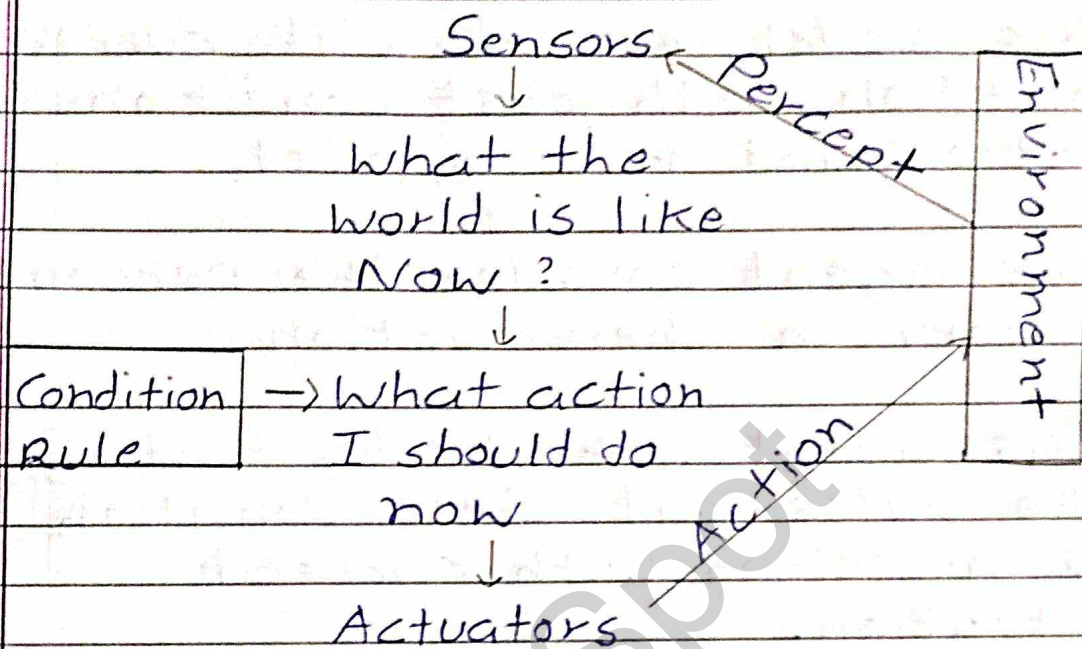 Sensors
Percept
Environment
What the
world is like
Now ?
Condition
Rule
What action
I should do
now
Action
Actuators